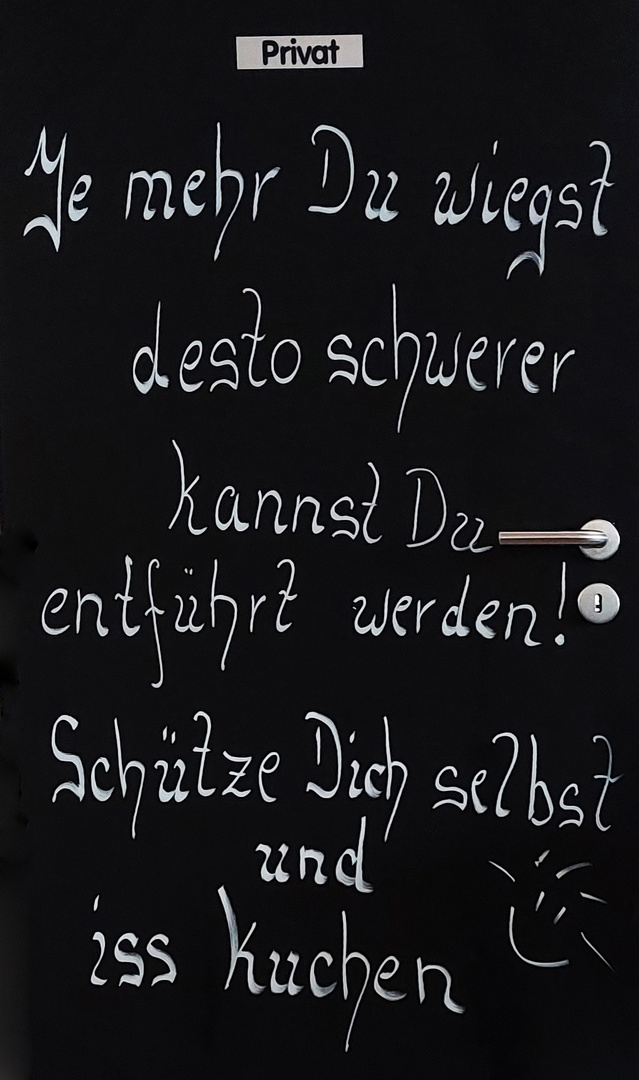 Privat
Je mehr Du wiegst
desto schwerer
kannst Du
entführt werden!
Schütze Dich selbst
und
iss Kuchen